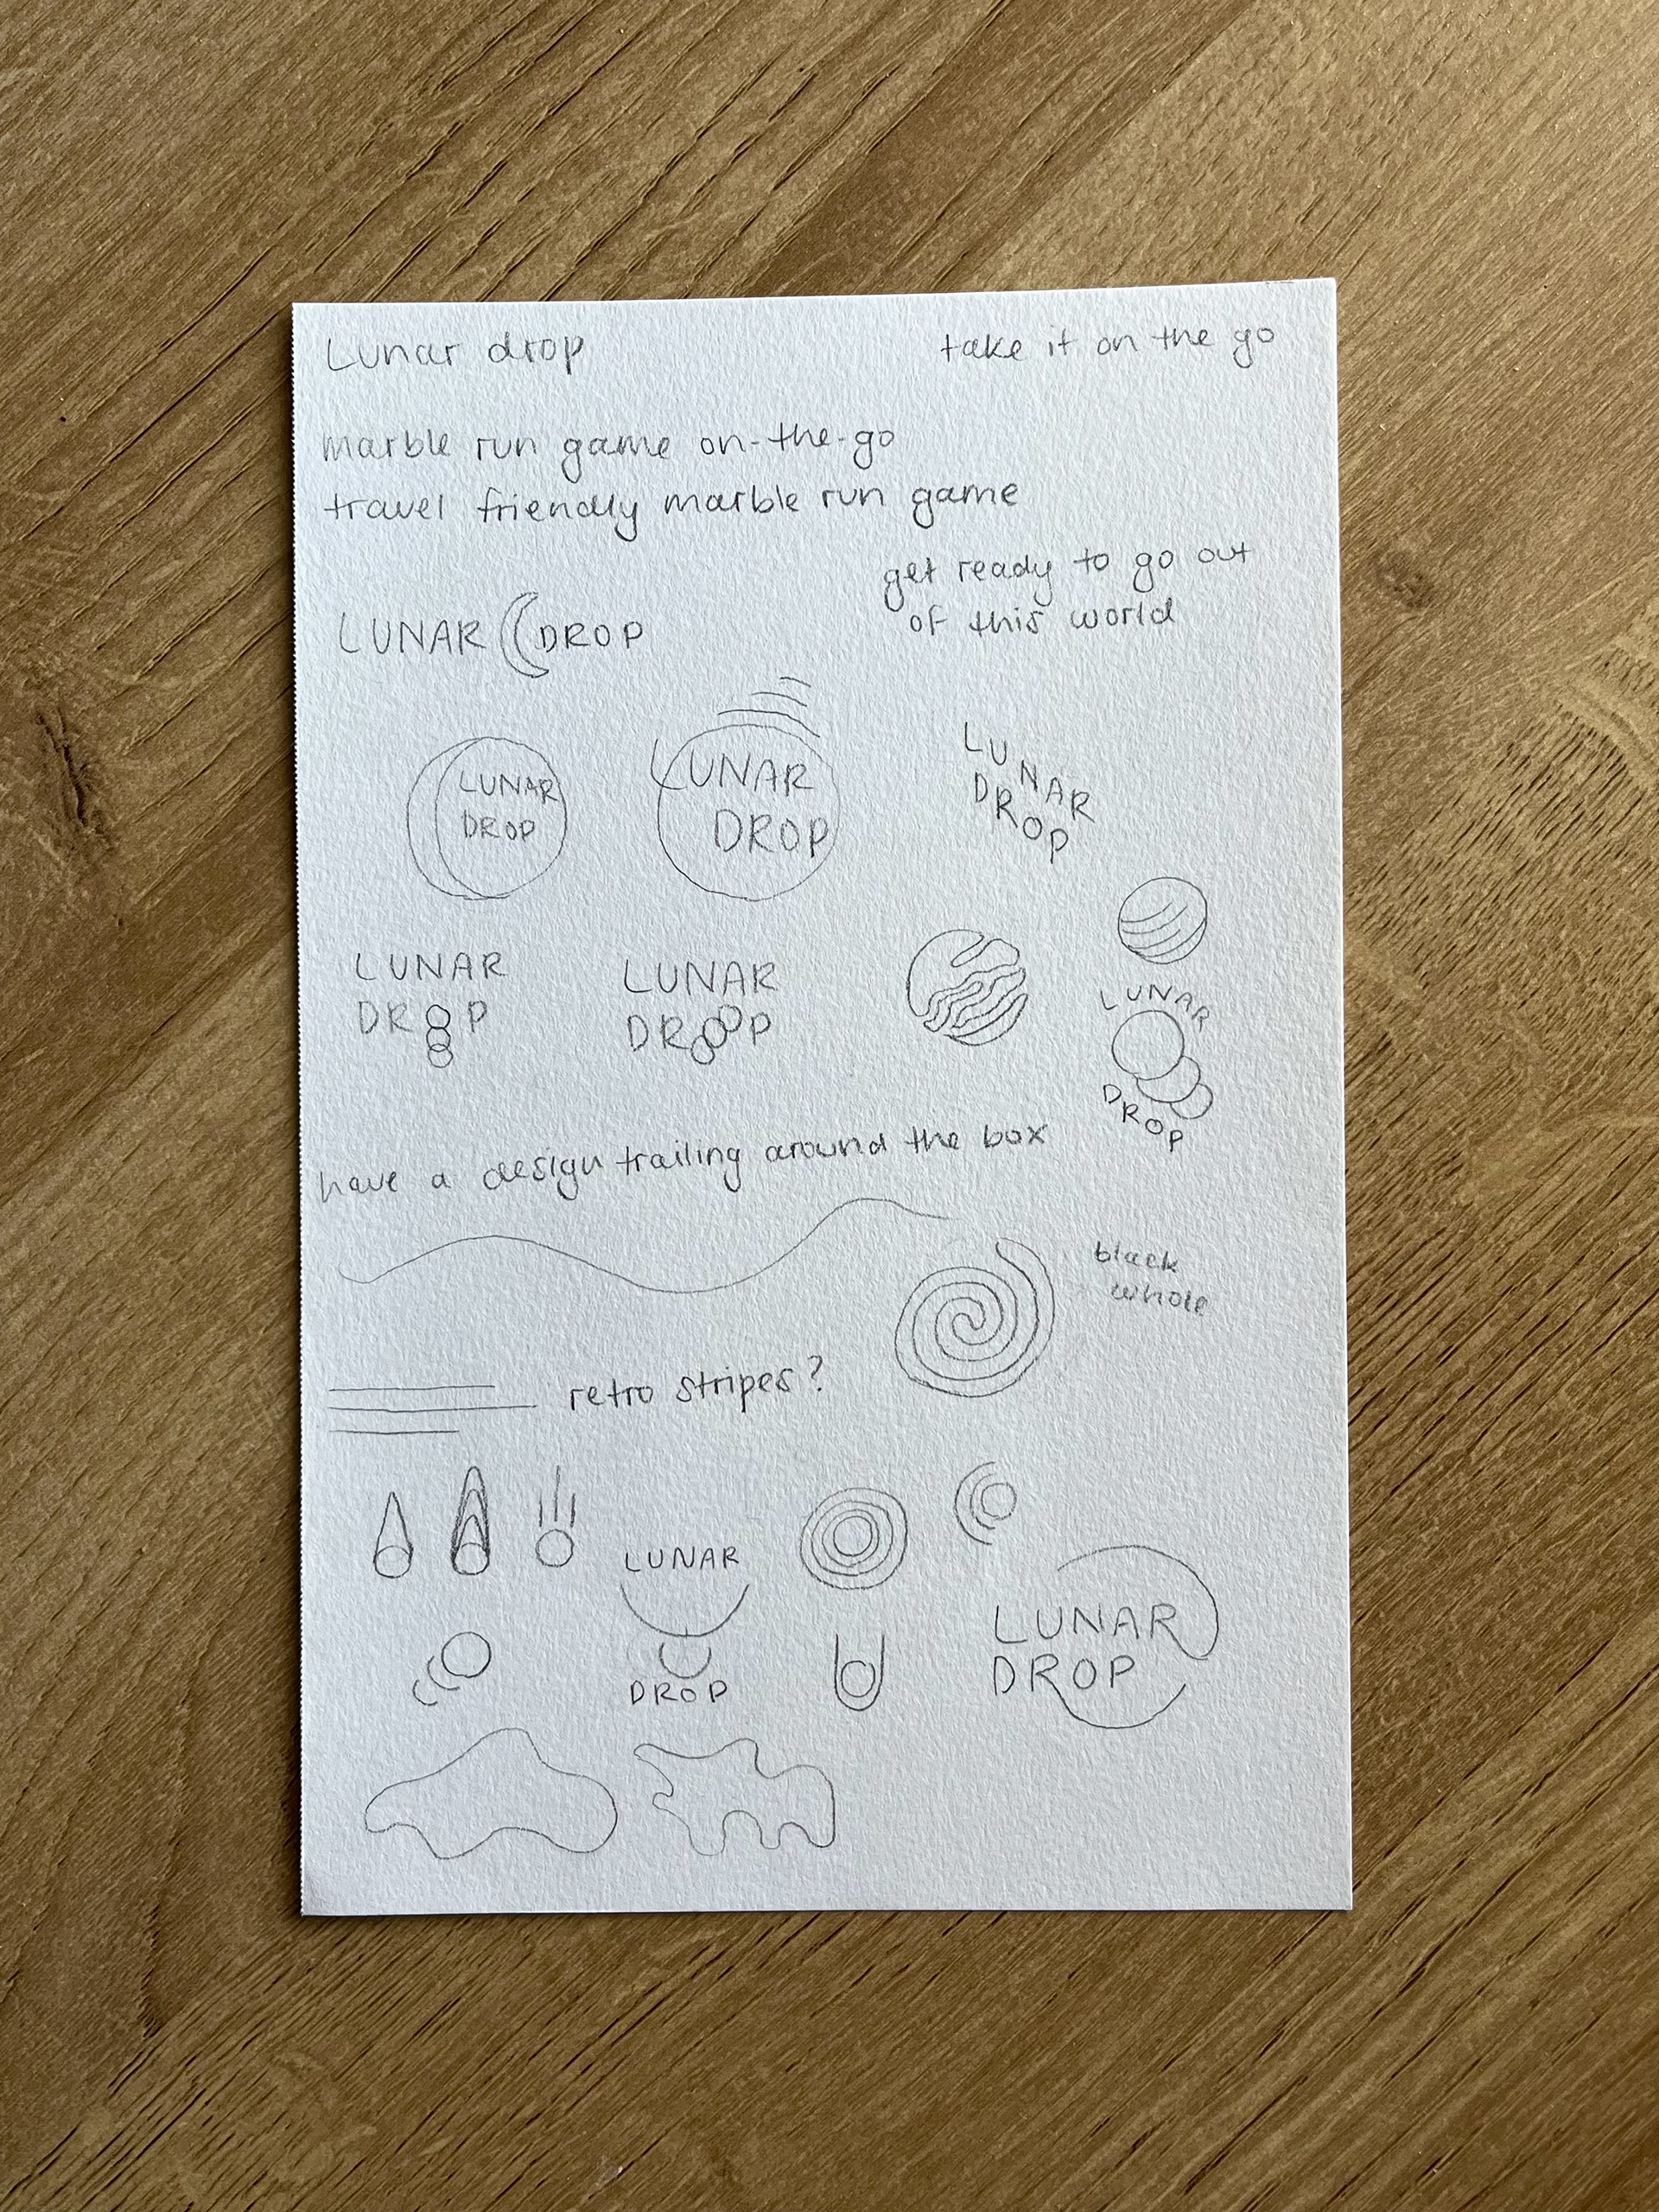 Lunar drop
take it on the go
marble run game on-the-go
travel friendly marble run game
get ready to go out
of this world
LUNAR DROP
LUNAR
DROP
LUNAR
DROP
LUNAR
DROP
LUNAR
DROP
LUNAR
DROP
LUNAR
DROP
have a design trailing around the box
black
whole
retro stripes?
LUNAR
DROP
LUNAR
DROP